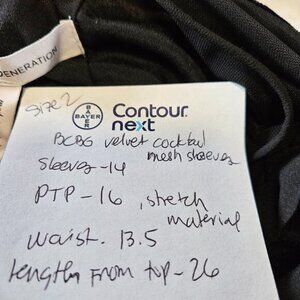 GENERATION
Size 2
BAYER
BAYER
Contour
next
BCBG velvet cocktail
mesh sleeves
Sleeves - 14
PTP - 16, stretch
material
Waist. 13.5
Length From top - 26